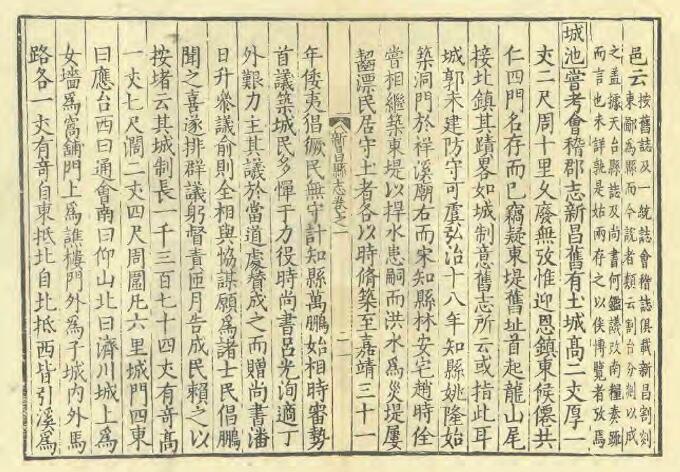 邑云按舊誌及一統誌會稽誌俱載新昌割剡
東鄙爲縣而今說者類云割台分剡以成
之蓋據天台縣誌及尚書何鑑議改南糧奏疏
而言也未詳孰是姑兩存之以俟博覽者攷焉
城池嘗考會稽郡志新昌舊有土城髙二丈厚一
丈二尺周十里久廢無攷惟迎恩鎮東候僊共
仁四門名存而已竊疑東堤舊址首起龍山尾
接北鎮其蹟畧如城制意舊志所云或指此耳
城郭未建防守可虞弘治十八年知縣姚隆始
築洞門於祥溪廟右而宋知縣林安宅趙時佺
嘗相繼築東堤以捍水患嗣而洪水爲災堤屢
齧漂民居守土者各以時脩築至嘉靖三十一
新昌縣志卷之二
年倭夷倡𤡬民無守計知縣萬鵬始相時審勢
首議築城民多憚于力役時尚書呂光洵適丁
外艱力主其議於當道處贊成之而贈尚書潘
日升衆議俞則全相與協謀願爲諸士民倡鵬
聞之喜遂排群議躬督責匝月告成民賴之以
按堵云其城制長一千三百七十四丈有竒髙
一丈七尺濶二丈四尺周圍凡六里城門四東
曰應台西曰通會南曰仰山北曰濟川城上爲
女墻爲窩舖門上爲譙樓門外爲子城内外馬
路各一丈有竒自東抵北自北抵西皆引溪爲